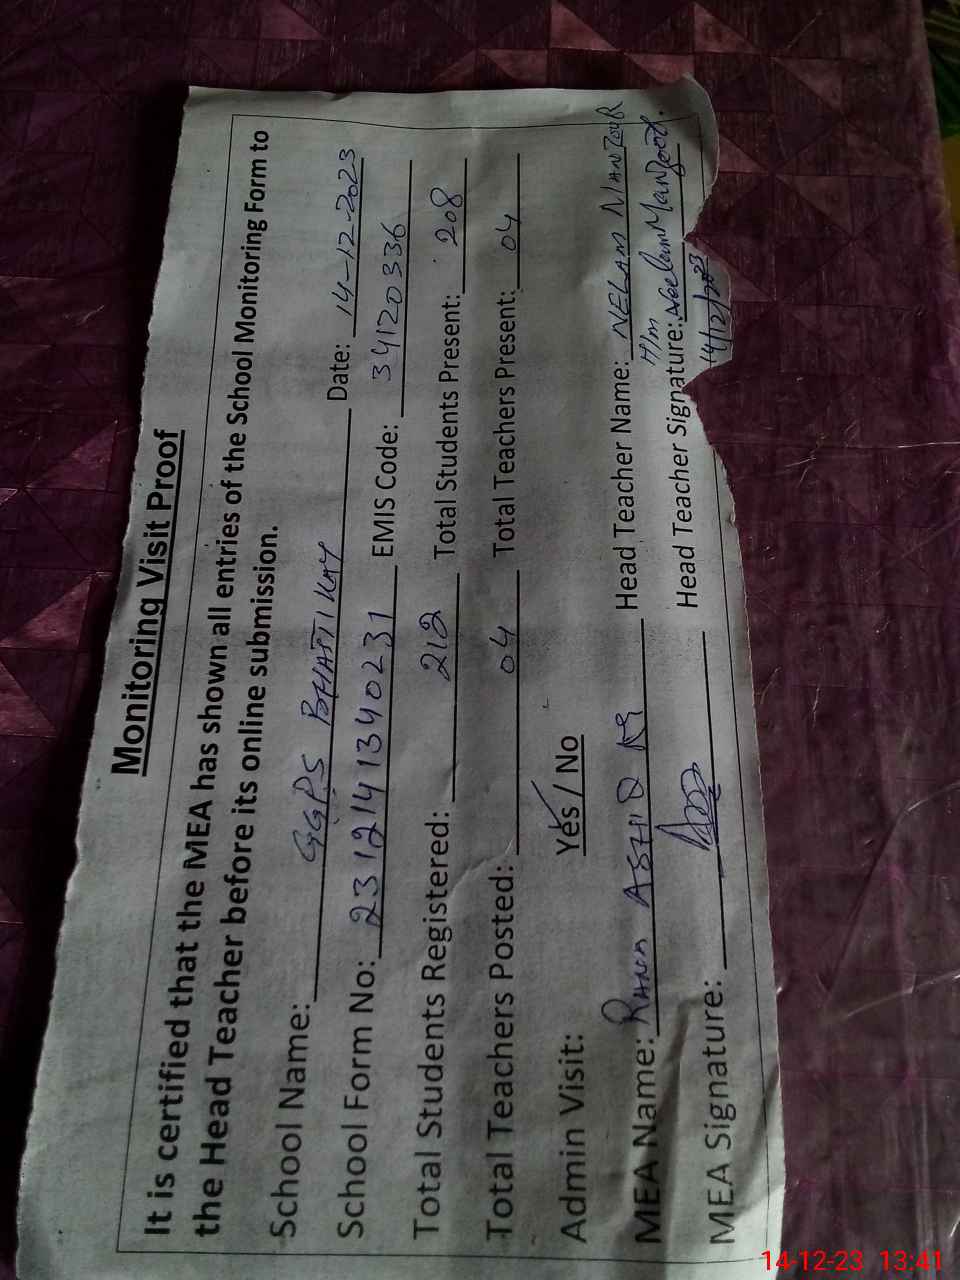 Monitoring Visit Proof
It is certified that the MEA has shown all entries of the School Monitoring Form to
the Head Teacher before its online submission.
School Name: GGPS BHATTI Date: 14-12-2023
School Form No: 231214134 0231 EMIS Code: 34120336
Total Students Registered: 212 Total Students Present: 208
Total Teachers Posted: 04 Total Teachers Present: 04
Admin Visit: Yes / No
MEA Name: RANA ASHIQ Head Teacher Name: NELAM MANZOOR
H/m
MEA Signature: Head Teacher Signature: Neelam Manzoor.
14/12/2023
14-12-23 13:41